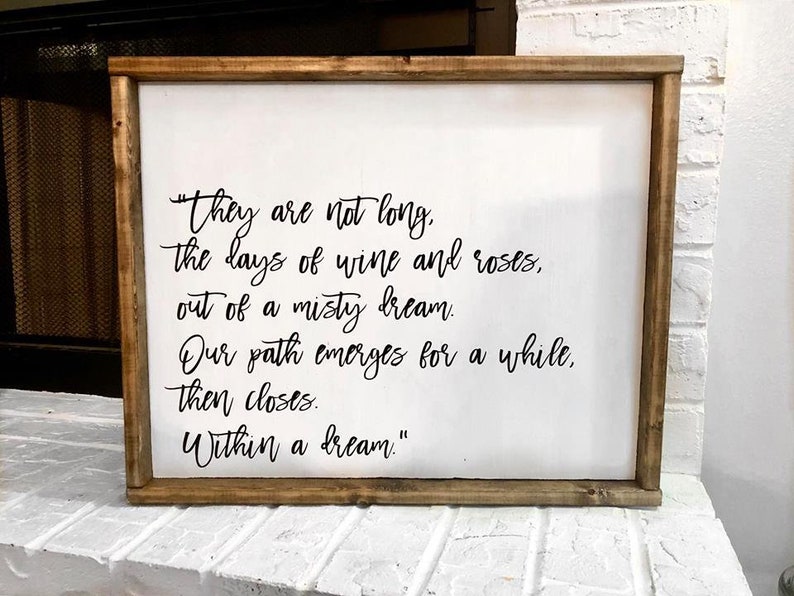 "They are not long,
the days of wine and roses,
out of a misty dream.
Our path emerges for a while,
then closes.
Within a dream."